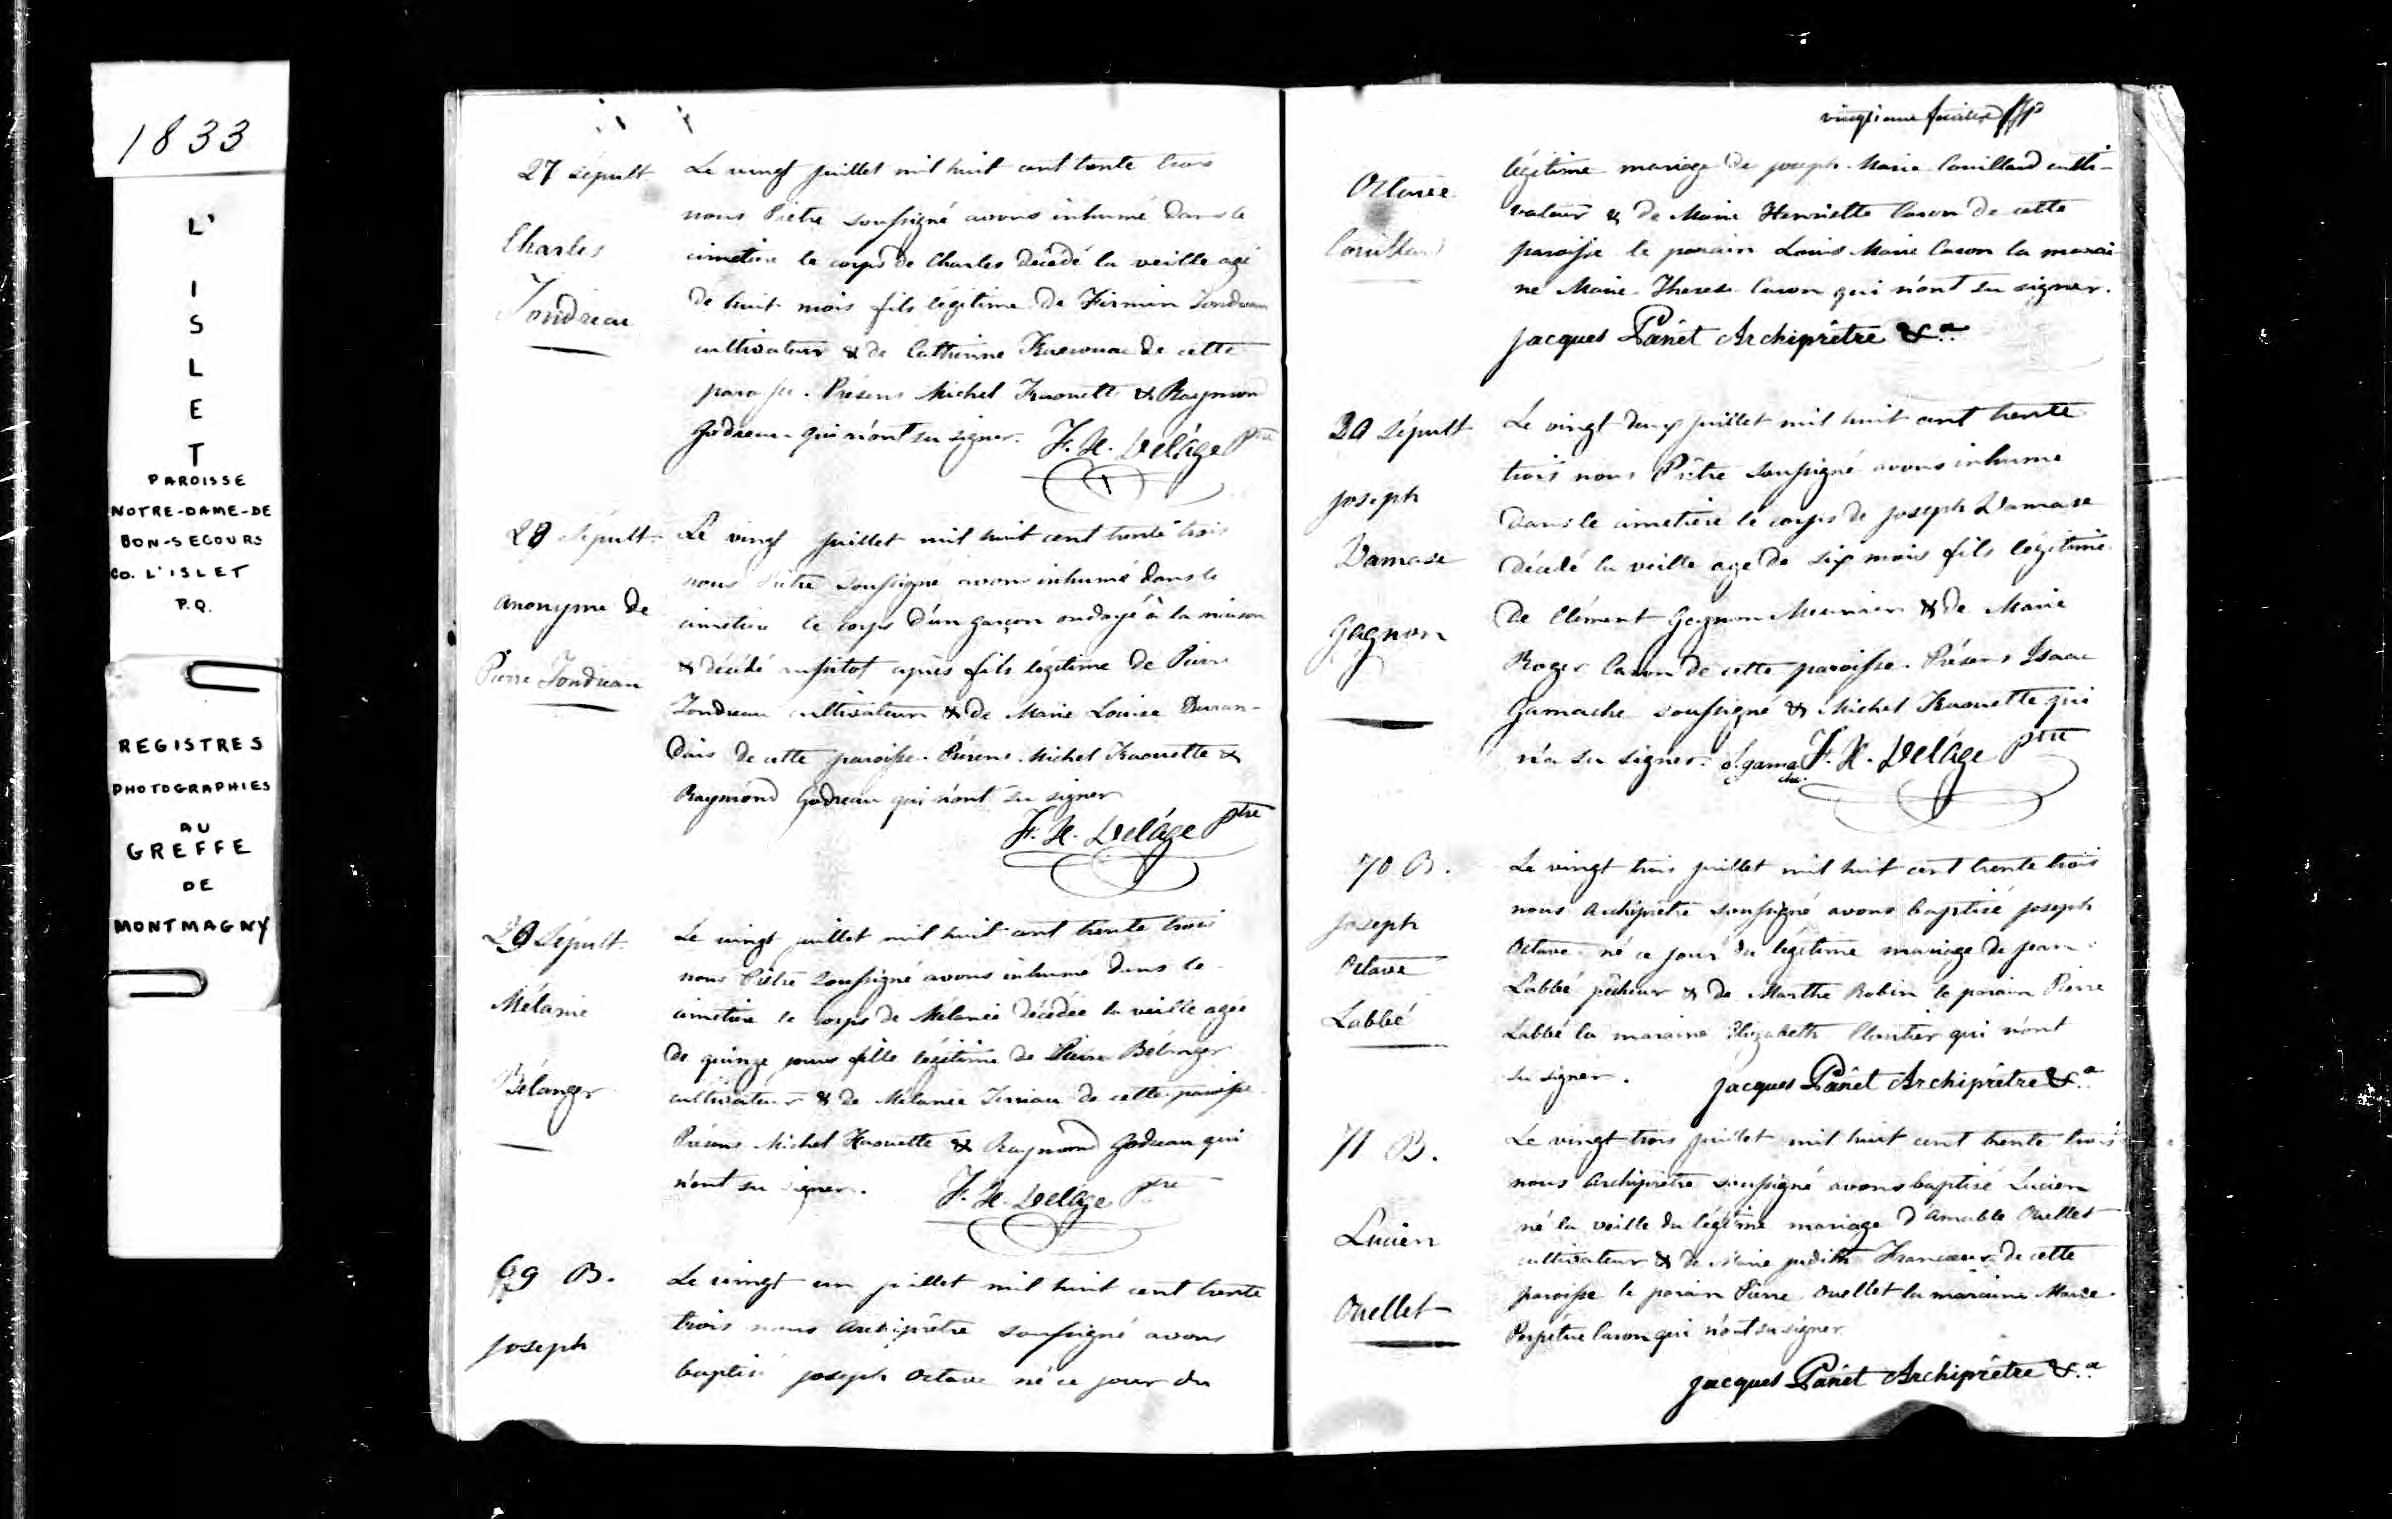 1833
L'
I
S
L
E
T
PAROISSE
NOTRE-DAME-DE
BON-SECOURS
CO. L'ISLET
P.Q.
REGISTRES
PHOTOGRAPHIES
AU
GREFFE
DE
MONTMAGNY
27 sépult
Charles
Tondreau
Le vingt juillet mil huit cent trente trois
nous Prêtre soussigné avons inhumé dans le
cimetière le corps de Charles décédé la veille agé
de huit mois fils légitime de Firmin Tondreau
cultivateur & de Catherine de cette
paroisse. Présens Michel Kuaouette & Raymond
Godreau qui n'ont su signer. F. X. Delâge Ptre
28 Sépult.
anonyme de
Pierre Tondreau
Le vingt juillet mil huit cent trente trois
nous Prêtre soussigné avons inhumé dans le
cimetière le corps d'un garçon ondoyé à la maison
& décédé aussitot après fils légitime de Pierre
Tondreau cultivateur & de Marie Louise Duran-
dais de cette paroisse. Présens Michel Kuaouette &
Raymond Godreau qui n'ont su signer
F. X. Delâge Ptre
29 Sépult.
Mélanie
Bélanger
Le vingt juillet mil huit cent trente trois
nous Prêtre soussigné avons inhumé dans le
cimetière le corps de Mélanie décédée la veille agée
de quinze jours fille légitime de Pierre Bélanger
cultivateur & de Mélanie de cette paroisse
Présens Michel Kuaouette & Raymond Godreau qui
n'ont su signer. F. X. Delâge Ptre
69 B.
Joseph
Le vingt un juillet mil huit cent trente
trois nous Archiprêtre soussigné avons
baptisé joseph Octave né ce jour du
vingtieme feuillet
Octave
Couillard
légitime mariage de joseph Marie Couillard culti-
vateur & de Marie Henriette Caron de cette
paroisse le parain Louis Marie Caron la marai-
ne Marie Therese Caron qui n'ont su signer.
Jacques Panet Archiprêtre &.a
30 Sépult
Joseph
Damase
Gagnon
Le vingt deux juillet mil huit cent trente
trois nous Prêtre soussigné avons inhumé
dans le cimetière le corps de joseph Damase
décédé la veille age de six mois fils légitime
de Clément Gagnon Meunier & de Marie
Roger Caron de cette paroisse. Présens Isaac
Gamache soussigné & Michel Kuaouette qui
n'a su signer. I. gama F. X. Delâge Ptre
che.
70 B.
Joseph
Octave
Labbé
Le vingt trois juillet mil huit cent trente trois
nous Archiprêtre soussigné avons baptisé joseph
Octave né ce jour du légitime mariage de jean
Labbé pêcheur & de Marthe Robin le parain Pierre
Labbé la maraine Elizabeth Cloutier qui n'ont
su signer. Jacques Panet Archiprêtre &.a
71 B.
Lucien
Ouellet
Le vingt trois juillet mil huit cent trente trois
nous Archiprêtre soussigné avons baptisé Lucien
né la veille du légitime mariage d'Amable Ouellet
cultivateur & de Marie judith Francoeur de cette
paroisse le parain Pierre Ouellet la maraine Marie
Perpétue Caron qui n'ont su signer
Jacques Panet Archiprêtre &.a